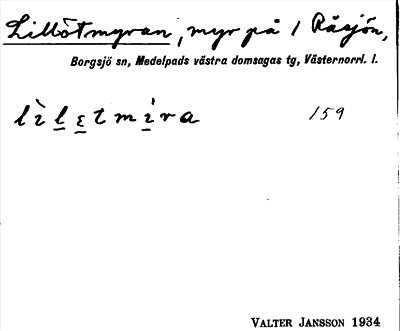 Lillötmyran, myr på / Råsjön,
Borgsjö sn, Medelpads västra domsagas tg, Västernorrl. l.
159
VALTER JANSSON 1934